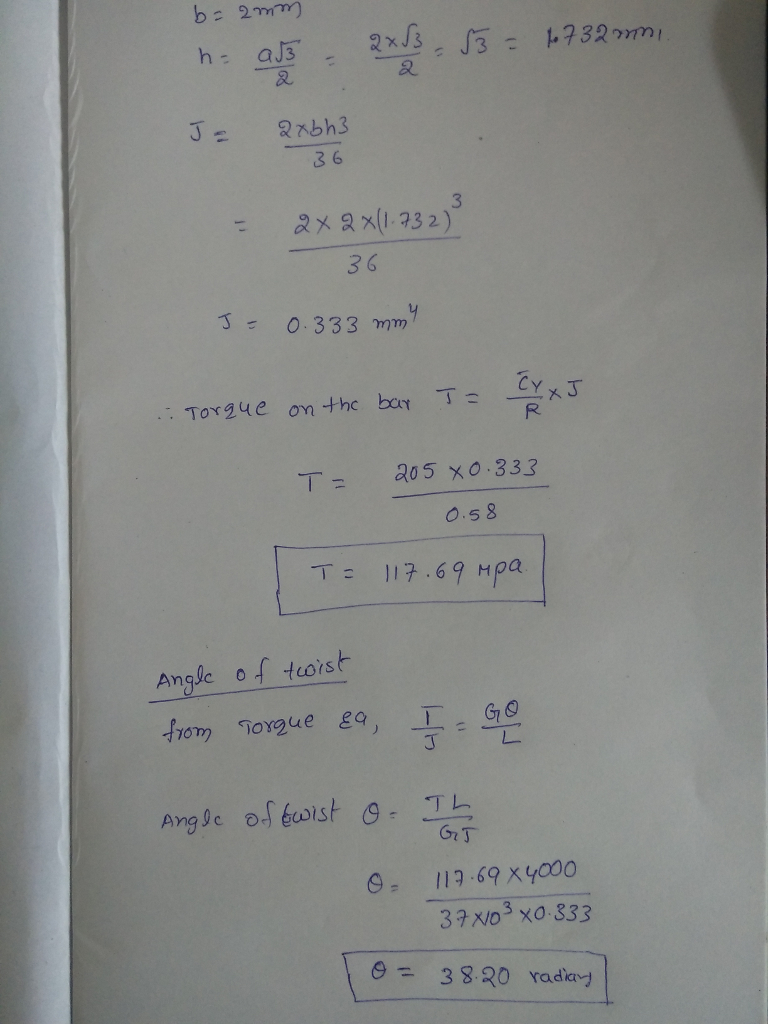 b = 2mm
h = a√3/2 = 2×√3/2 = √3 = 1.732mm.
J = 2×bh3/36
= 2×2×(1.732)³/36
J = 0.333 mm⁴
∴ Torque on the bar T = τY/R × J
T = 205 × 0.333/0.58
T = 117.69 Mpa
Angle of twist
from Torque Eq, T/J = GΘ/L
Angle of twist Θ = TL/GJ
Θ = 117.69 × 4000/37×10³ × 0.333
Θ = 38.20 radians